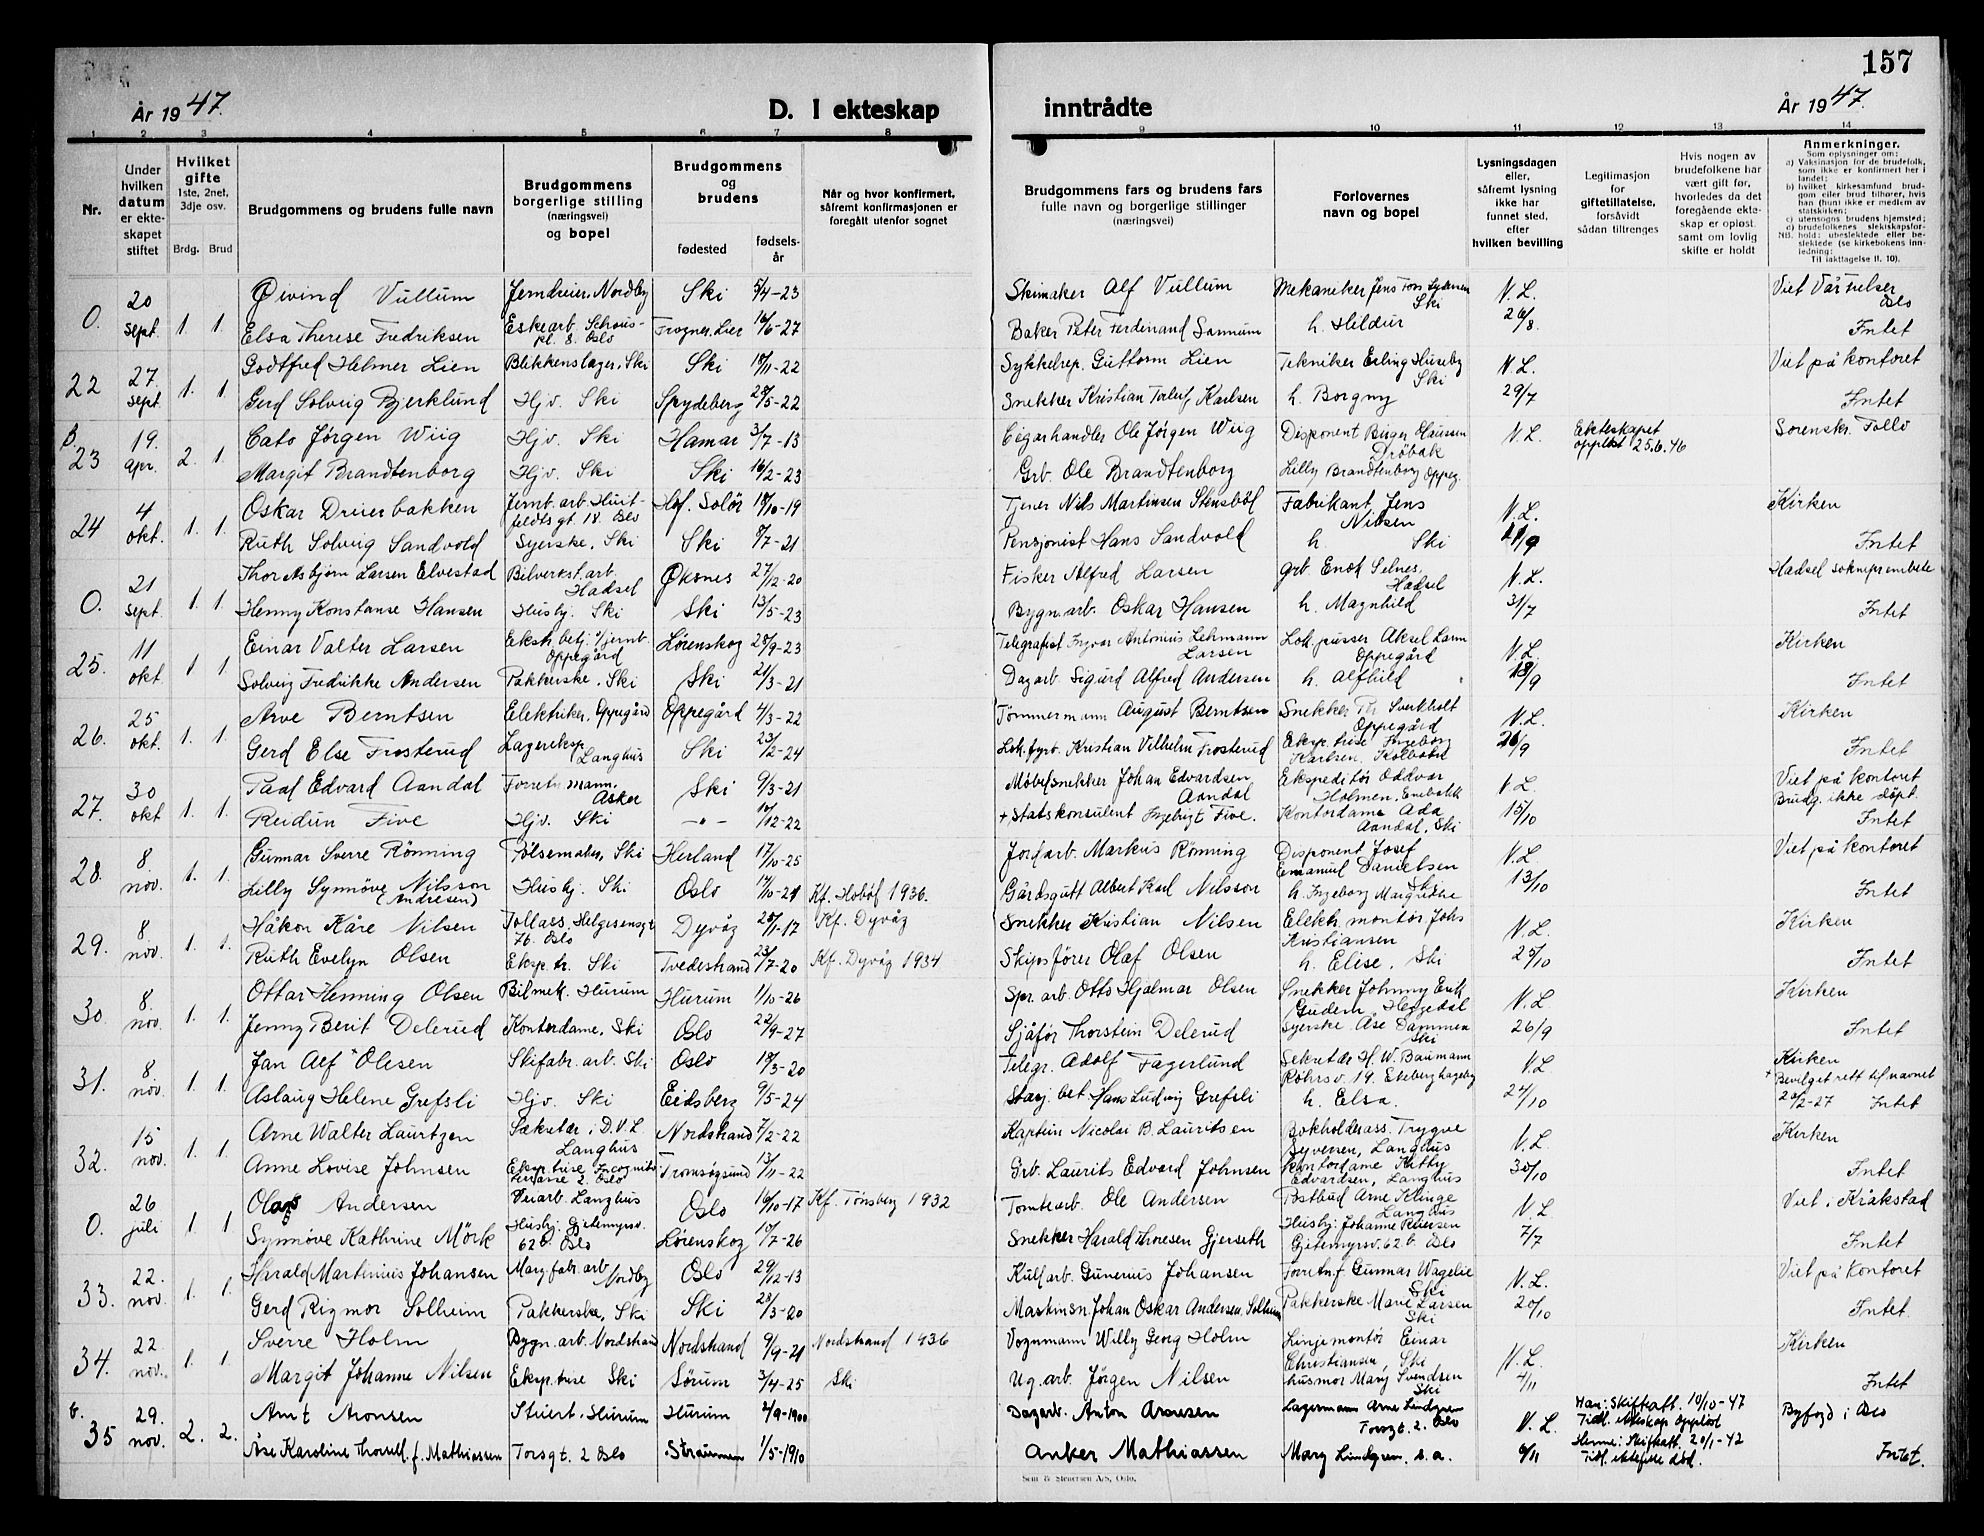 157
År 1947.
D. I ekteskap inntrådte
År 1947.
1 2 3 4 5 6 7 8 9 10 11 12 13 14
Nr.
Under hvilken datum er ekteskapet stiftet
Hvilket gifte 1ste, 2net, 3dje osv.
Brdg. Brud
Brudgommens og brudens fulle navn
Brudgommens borgerlige stilling (næringsvei) og bopel
Brudgommens og brudens
fødested
fødselsår
Når og hvor konfirmert, såfremt konfirmasjonen er foregått utenfor sognet
Brudgommens fars og brudens fars fulle navn og borgerlige stillinger (næringsvei)
Forlovernes navn og bopel
Lysningsdagen eller, såfremt lysning ikke har funnet sted, efter hvilken bevilling
Legitimasjon for giftetillatelse, forsåvidt sådan tiltrenges
Hvis nogen av brudefolkene har vært gift før, hvorledes da det foregående ekteskap er opløst samt om lovlig skifte er holdt
Anmerkninger.
Som oplysninger om:
a) Vaksinasjon for de brudefolk, som ikke er konfirmert her i landet;
b) hvilket kirkesamfund brudgom eller brud tilhører, hvis han (hun) ikke er medlem av statskirken;
c) utensogns brudens hjemsted;
d) brudefolkenes slektskapsforhold: ubeslektede eller beslektede (se kirkebokens innledning:
NB. Til iakttagelse II. 10).
0. 20 sept. 1. 1. Øivind Vullum Jerndreier, Nordby Ski 5/4-23 Skimaker Alf Vullum Mekaniker Jens Ski N.L. Viet Vår Frelser Oslo
Elsa Therese Fredriksen Eskearb. Schous-pl. 8. Oslo Frogner, Lier 16/6-27 Baker Peter Ferdinand h. Hildur 26/8. Intet
22 27. sept. 1. 1. Godtfred Helmer Lien Blikkenslager, Ski Ski 18/11-22 Sykkelrep. Guttorm Lien Tekniker Erling Huseby Ski N.L. Viet på kontoret
Gerd Solveig Bjerklund Hjv. Ski Spydeberg 28/5-22 Snekker Kristian Torleif Karlsen h. Borgny 29/7 Intet
B. 23 19. apr. 2. 1. Cato Jørgen Wiig Hjv. Ski Hamar 3/7-13 Cigarhandler Ole Jörgen Wiig Disponent Birger Hanssen Dröbak N.L. Ekteskapet oppløst 25.6.46 Sorenskr. Follo
Margit Brandtenborg Hjv. Ski Ski 16/2-23 Grb. Ole Brandtenborg Lilly Brandtenborg Oppeg.
24 4 okt. 1. 1. Oskar Dreierbakken Jernb. arb. Huitfeldts gt 18. Oslo Hof. Solör 18/10-19 Tjener Nils Martinsen Fabrikant Jens Nilsen N.L. Kirken
Ruth Solveig Sandvold Syerske, Ski Ski 8/7-21 Pensjonist Hans Sandvold h. Ski /9 Intet
0. 21 sept. 1. 1. Thor Asbjørn Larsen Elvestad Bilverkst. arb. Hadsel Øksnes 27/12-20 Fisker Alfred Larsen Grb. Enok Selnes, Hadsel N.L. Hadsel sokneprembete
Henny Konstanse Hansen Husbj. Ski Ski 13/5-23 Bygn. arb. Oskar Hansen h. Magnhild 31/7 Intet
25. 11 okt. 1 1. Einar Valter Larsen Ekstr. betj. v/jernb. Oppegård Lörenskog 28/9-23 Telegrafist Ingvar Antonius Lehmann Larsen Lok. pusser Aksel Oppegård N.L. Kirken
Solveig Fredrikke Andersen Pakkerske, Ski Ski 21/3-21 Dagarb. Sigurd Alfred Andersen h. Alfhild 18/9 Intet
26. 25 okt. 1. 1. Arve Berntsen Elektriker. Oppegård Oppegård 4/3-22 Tömmermann August Berntsen Snekker Tor Svenkholt Oppegård N.L. Kirken
Gerd Else Frosterud Lagereksp. Langhus Ski 23/2-24 Lok. fyrb. Kristian Vilhelm Frosterud Eksp. trise Ingeborg Karlsen, Kolbotn /9 Intet
27. 30 okt 1. 1. Paal Edvard Aandal Forretn. mann. Asker Ski 9/3-21 Möbelsnekker Johan Edvardsen Aandal Ekspeditör Oddvar Holmen, N.L. Viet på kontoret Brudg. ikke döpt.
Reidun Five Hjv. Ski -"- 10/12-22 + Statskonsulent Ingebrigt Five. Kontordame Ada Aandal, Ski 15/10 Intet
28. 8 nov. 1. 1. Gunnar Sverre Rönning Pölsemaker, Ski Herland 17/10-25 Jordarb. Markus Rönning Disponent Josef Emanuel Danielsen N.L. Viet på kontoret
Lilly Synnöve Nilsson (Andresen) Husbj. Ski Oslo 14/10-21 Kf. Hoböl 1936. Gårdsgutt Albert Karl Nilsson h. Ingeborg Margrethe 13/10 Intet
29. 8 nov. 1. 1. Håkon Kåre Nilsen Tollass. Helgesensgt 76. Oslo Dyvåg 28/1-17 Kf. Dyvåg Snekker Kristian Nilsen Elektr. montör Johs Kristiansen N.L. Kirken
Ruth Evelyn Olsen Eksp. tr. Ski Tvedestrand 23/7-20 Kf. Dyvåg 1934 Skipsförer Olaf Olsen h. Elise, Ski 25/10 Intet
30. 8. nov. 1. 1. Ottar Henning Olsen Bilmek. Hurum Hurum 1/10-26 Spr. arb. Otto Hjalmar Olsen Snekker Johnny Erik Gudem, Heggedal N.L. Kirken
Jenny Berit Delerud Kontordame, Ski Oslo 22/9-27 Sjåför Thorstein Delerud Syerske Åse Dammen Ski 26/9 Intet
31. 8. nov. 1. 1. Jan Alf + Olesen Skifabr. arb. Ski Oslo 18/3-20 Telegr. Adolf Fagerlund Sekretær H. W. Baumann Röhrsv. 19. Ekeberghageby N.L. Kirken + Bevilget rett til navnet
Aslaug Helene Grefsli Hjv. Ski Eidsberg 9/5-24 Stasj. bet Hans Ludvig Grefsli h. Elsa. 24/10 /2-27 Intet
32. 15 nov. 1. 1. Arne Walter Lauritzen Sekretær i D.V.L. Langhus Nordstrand 7/2-22 Kaptein Nicolai B. Lauritsen Bokholderass. Trygve Syversen, Langhus N.L. Kirken
Anne Lovise Johnsen Eksp. trise Incognito terrasse 2. Oslo Tromsøysund 13/11-22 Grb. Laurits Edvard Johnsen Kontordame Kitty Edvardsen, Langhus 30/10 Intet
0. 26 juli 1 1 Andersen Langhus Oslo 16/10-17 Kf. Tønsberg 1932 Tomtearb. Ole Andersen Postbud Arne Klinge Langhus N.L. Viet i Kråkstad
Synnöve Kathrine Mörk Husbj. Gjetemyrsv. 62b. Oslo Lörenskog 10/7-26 Snekker Harald Thoresen Gjerseth Husbj. Johanne Gjetemyrsv. 62b Oslo 7/7 Intet
33. 22. nov. 1. 1. Harald Martinius Johansen Marg. fabr. arb. Nordby Oslo 29/12-13 Kullarb. Gunerius Johansen Forretn.f. Gunnar Wagelie Ski N.L. Viet på kontoret
Gerd Rigmor Solheim Pakkerske, Ski Ski 23/3-20 Maskinsn. Johan Oskar Andersen Solheim Pakkerske Marie Larsen Ski 20/10 Intet.
34. 22 nov. 1. 1. Sverre Holm Bygn. arb. Nordstrand Nordstrand 9/9-21 Nordstrand 1936 Vognmann Willy Georg Holm Linjemontör Einar Christiansen, Ski N.L. Kirken
Margit Johanne Nilsen Eksp. trise Ski Sörum 3/4-25 Ski Ug. arb. Jörgen Nilsen husmor Mary Svendsen Ski 4/11 Intet
b. 35 29. nov. 2. 2. Arnt Aronsen Stuert, Hurum Hurum 2/9-1900 Dagarb. Anton Aronsen Lagermann Arne Lindgren Torsgt. 2. Oslo N.L. Han: Skifteatt. 10/10-47 Tidl. ekteskap oppløst Byfogd i Oslo
Åse Karoline f. Mathiassen Torsgt. 2 Oslo Strømmen 1/5-1910 Anker Mathiassen Mary Lindgren, s.a. 6/11 Henne: Skifteatt. 20/1-42 Tidl. ektefelle död. Intet.
Sem & Stenersen A/S, Oslo.